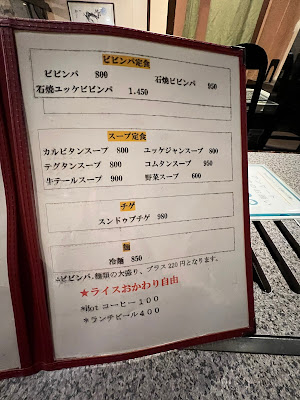 ビビンバ定食
ビビンバ 800 石焼ビビンバ 950
石焼ユッケビビンバ 1.450
スープ定食
カルビタンスープ 800 ユッケジャンスープ 800
テグタンスープ 800 コムタンスープ 950
牛テールスープ 900 野菜スープ 600
チゲ
スンドゥブチゲ 980
麺
冷麺 850
ビビンバ、麺類の大盛り、プラス220円となります。
★ライスおかわり自由
*Hot コーヒー100
*ランチビール400